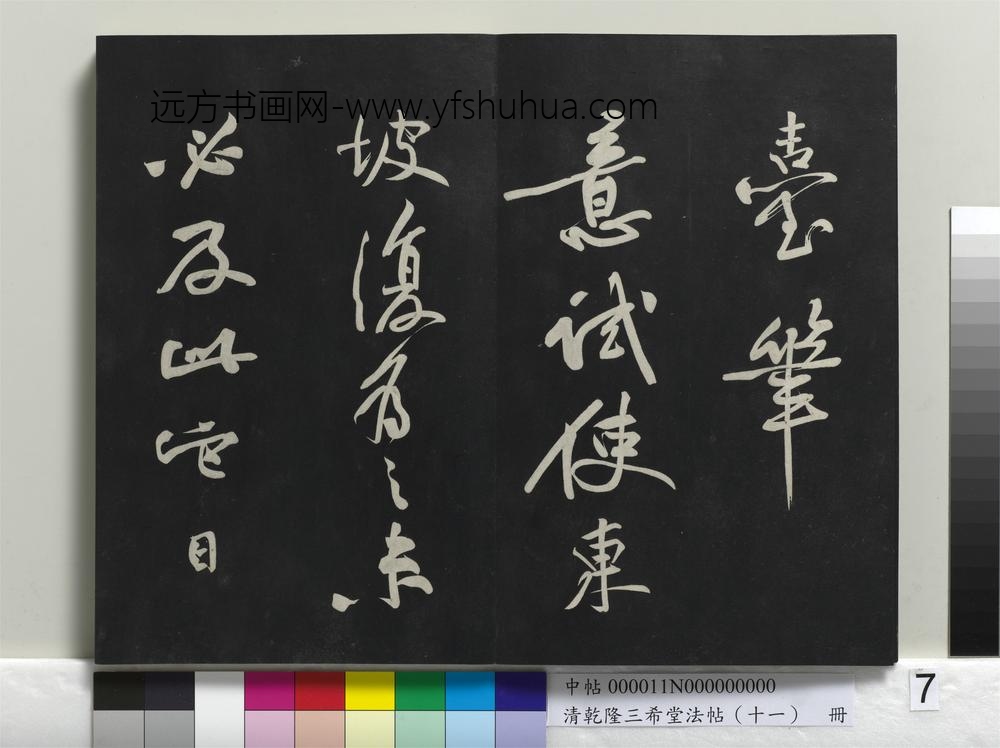 臺筆
意試使東
坡復為之未
必及此它日
远方书画网-www.yfshuhua.com
中帖 000011N000000000
清乾隆三希堂法帖（十一） 冊
7